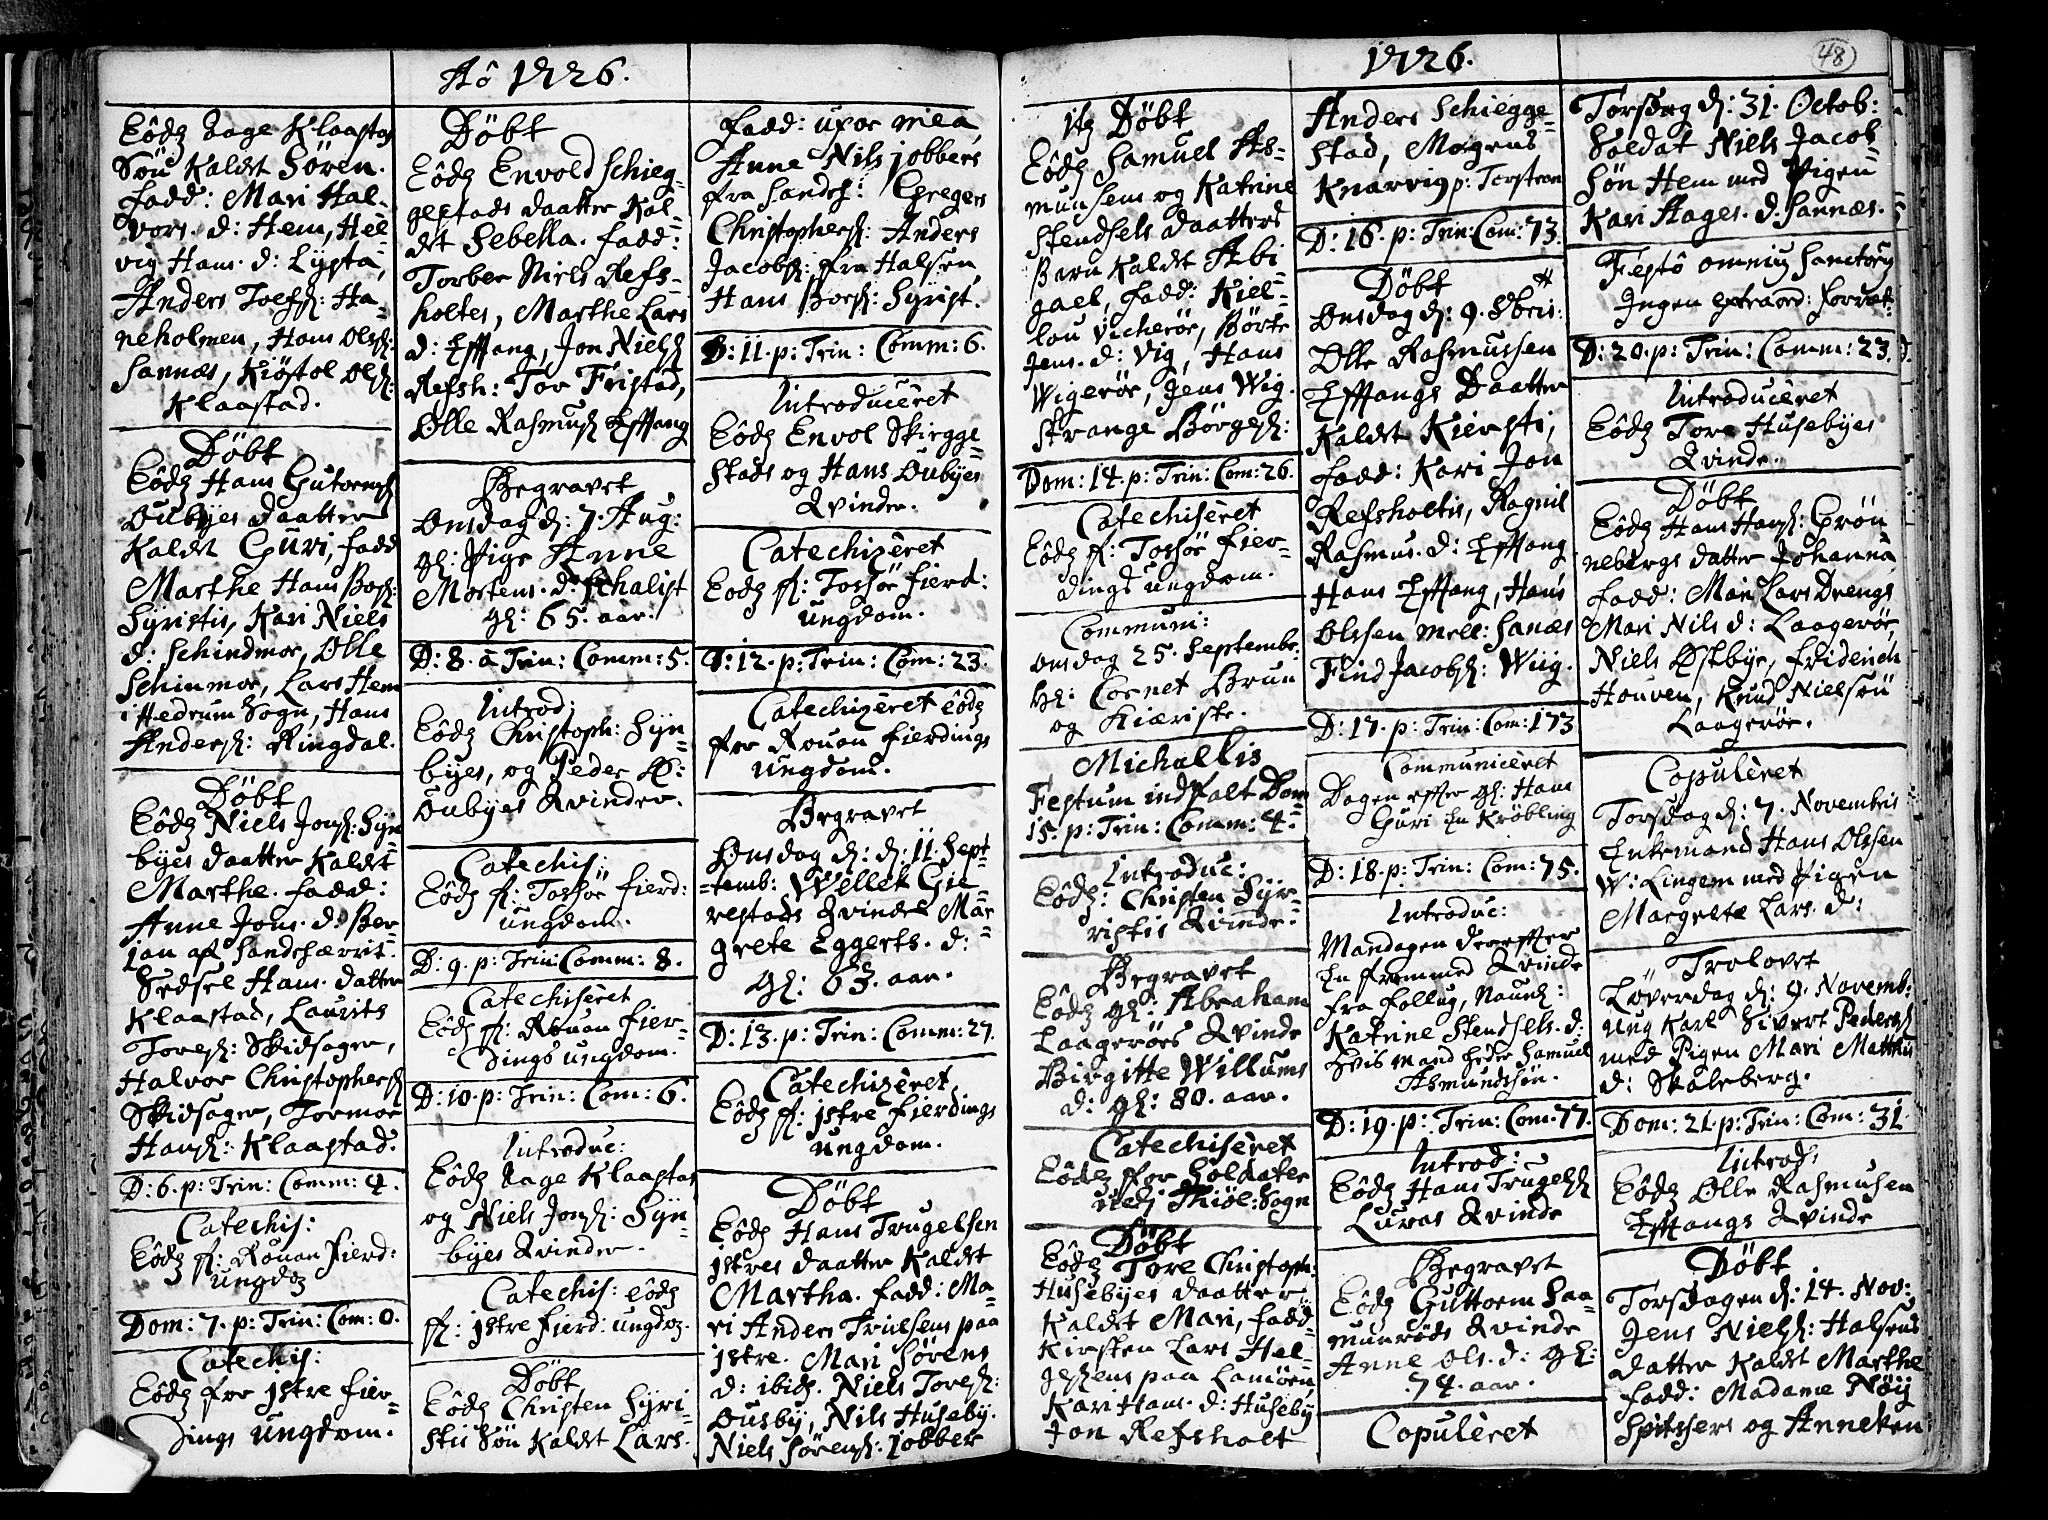 Aô 1726.
Eôdẽ Aage Klaastas
Søn Kaldt Søren.
fadd: Mari Hal-
vors. d: Hem, Hel-
vig Hans. d: Lysta,
Anders Joefs: Ha-
neholmen, Hans Ols:
Sannæs, Kiøstol Ols:
Klaastad.
Døbt
Eôdẽ Hans Gutorms
Oubyes Daatter
Kaldt Guri, fadd
Marthe Hans Bos:
Syristis, Kari Niels
d: Schindmoe, Olle
Schinmoe, Lars Hem
i Hedrum Sogn, Hans
Anders: Ringdal.
Døbt
Eôdẽ Niels Jons: Syn
byes Daatter Kaldt
Marthe. fadd:
Anne Jons. d: Ber-
jan af Sandehærrit.
Sedsel Hans. datter
Klaastad, Laurits
Tores: Skidsager,
Halvor Christophers
Skidsager, Tormoe
Hans: Klaastad.
D: 6. p: Trin: Comm: 4.
Catechis:
Eôdẽ ff: Rouan Fierd:
ungdom
Dom: 7. p: Trin: Com: 0.
Catechis:
Eôdẽ for istre fier-
dings ungdom.
Døbt
Eôdẽ Envold Schieg-
gestads daatter Kal-
dt Sebella. fadd:
Torber Niels Refs-
holtes, Marthe Lars
d: Efftang, Jon Niels
Refsh: Tor Fristad,
Olle Rasmus Efftang
Begravet
Onsdag d: 7. Aug:
gl: Pige Anne
Mortens. d: Schalist
gl: 65. aar.
D: 8. à Trin: Comm: 5.
Introd:
Eôdẽ Christoph: Syn-
byes, og Peder
Oubyes Qvinder.
Catechis:
Eôdẽ ff: Tossøe fierd:
ungdom.
D: 9. p: Trin: Comm: 8.
Catechisêret
Eôdẽ ff: Rouan fier-
dings ungdom.
D: 10. p: Trin: Com: 6.
Introduc:
Eôdẽ Aage Klaastas
og Niels Jons: Syn-
byes Qvinder.
Catechis: eôdẽ
ff: istre fierd: ungdom.
Døbt
Eôdẽ Christen Syri-
stis Søn Kaldt Lars.
Fadd: uxor mea,
Anne Nils jobbers
fra Sandeh: Gregers
Christophers: Anders
Jacobs: fra Halsen
Hans Bors: Syrist.
D: 11. p: Trin: Comm: 6.
Introducêret
Eôdẽ Envol Skiegge-
stads og Hans Oubyes
Qvinder.
Catechizêret
Eodẽ ff: Tossøe fierd:
ungdom.
D: 12. p: Trin: Com: 23.
Catechizêret eôdẽ
for Rouan fierdings
ungdom.
Begravet
Onsdag d: d: 11. Sept-
temb: Wellek Gie-
restads Qvinde Mar-
grete Eggerts. d:
gl: 63. aar.
D: 13. p: Trin: Comm: 27.
Catechizêret
Eôdẽ ff: istre fierdings
ungdom.
Døbt
Eôdẽ Hans Trugelsen
istres daatter Kaldt
Martha. fadd: Ma-
ri Anders Truelsens paa
istre. Mari Sørens
d: ibid. Niels Tores:
Ousby, Nils Huseby.
Niels Sørens: jobber
1726.
48
Døbt
Eôdẽ Samuel As-
munsens og Katrine
Stendsels daatters
Barn Kaldt Abi-
gael, fadd: Kiel-
lou Vicherøe, Børte
Jens. d: Vig, Hans
Wigerøe, Jens Wig.
Strange Børges:
Dom: 14. p: Trin: Com: 26.
Catechisêret
Eôdẽ ff: Tossøe fier-
dings ungdom.
Communi:
onsdag 25. Septembr:
Hl: Cornet Brun
og Kiæriste.
Michaëlis
Festum indfalt Dom
15. p: Trin: Comm: 4.
Introduc:
Eôdẽ: Christen Syr-
ristis Qvinde.
Begravet
Eôdẽ gl: Abraham
Laagerøes Qvinde
Birgitte Willums
d: gl: 80. aar.
Catechisêret
Eôdẽ for Soldater
Thiøl: Sogn
Døbt
Eôdẽ Tore Christoph:
Husebyes daatter
Kaldt Mari, fadd:
Kirsten Lars Hel-
gesens paa Lamøen,
Kari Hans. d: Huseby
Jon Refsholt
Anders Schiegge-
stad, Mogens
Knarvig p: Torstran
D: 16. p: Trin: Com: 73.
Døbt
Onsdag d: 9. 8bris:
Olle Rasmussen
Efftangs Daatter
Kaldt Kiersti,
fadd: Kari Jon
Refsholtis, Ragnil
Rasmus. d: Efftang
Hans Efftang, Hans
Olssen mell: Sanæs
Find Jacobs: Wiig.
D: 17. p: Trin: Com: 173
Communicêret
Dagen efter gl: Hans
Guri En Krøbling
D: 18. p: Trin: Com: 75.
Introduc:
Mandagen derefter
En fremmed Qvinde
fra Follug, Naunl:
Katrine Stendsels. d:
Hvis mand heder Samuel
Asmundssøn.
D: 19. p: Trin: Com: 77.
Introd:
Eôdẽ Hans Trugels
Lunas Qvinde
Begravet
Eôdẽ Guttorm Saa-
munrøds Qvinde
Anne Ols. d: gl:
74. aar.
Copulêret
Torsdag d: 31. Octob:
Soldat Niels Jacob-
Søn Hem med Pigen
Kari Aages. d: Sannæs.
Festô omniũ Sanctorũ
Ingen extraord: forret:
D: 20. p: Trin: Comm: 23.
Introducêret
Eôdẽ Tore Husebyes
Qvinde.
Døbt
Eôdẽ Hans Hans: Grøn
nebergs datter Johanna
fadd: Mari Lars Drengs
Mari Nils d: Laagerøe,
Niels Østbye, friderich
Houven, Knud Nielsøn
Laagerøe.
Copulêret
Torsdag d: 7. Novembris
Enkemand Hans Olssen
W: Lingem med Pigen
Margrete Lars. d:
Trolovet
Løverdag d: 9. Novemb:
ung Karl Sivert Peders
med Pigen Mari Matthis
d: Skaleberg.
Dom: 21. p: Trin: Com: 31.
Introd:
Eôdẽ Olle Rasmusen
Efftangs Qvinde
Døbt
Torsdagen d: 14. Nov:
Jens Niels: Halsens
datter Kaldt Marthe
fadd: Madame Nøÿ
Spitsers og Anneken